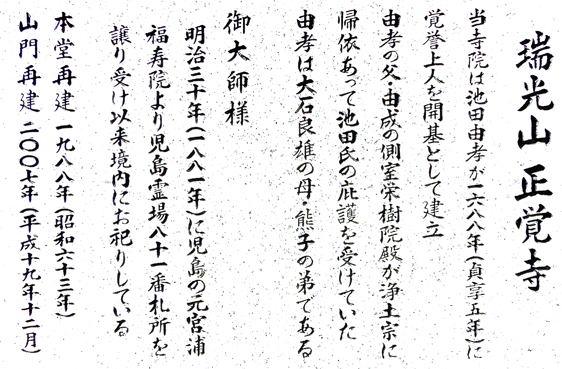 瑞光山 正覚寺
当寺院は池田由孝が一六八八年(貞享五年)に
覚誉上人を開基として建立
由孝の父・由成の側室栄樹院殿が浄土宗に
帰依あって池田氏の庇護を受けていた
由孝は大石良雄の母・熊子の弟である
御大師様
明治三十年(一八八一年)に児島の元宮浦
福寿院より児島霊場八十一番札所を
譲り受け以来境内にお祀りしている
本堂再建 一九八八年(昭和六十三年)
山門再建 二〇〇七年(平成十九年十二月)